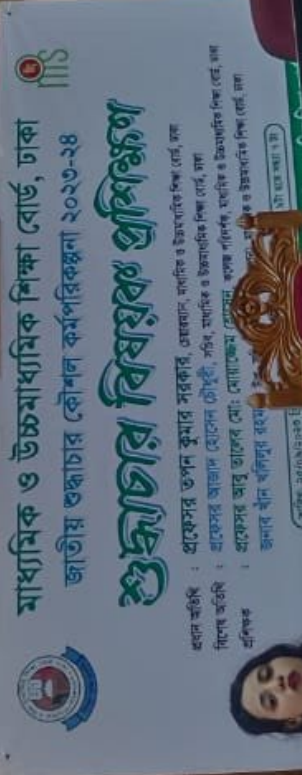 মাধ্যমিক ও উচ্চমাধ্যমিক শিক্ষা বোর্ড, ঢাকা
জাতীয় শুদ্ধাচার কৌশল কর্মপরিকল্পনা ২০২৩-২৪
শুদ্ধাচার বিষয়ক প্রশিক্ষণ
প্রধান অতিথি : প্রফেসর তপন কুমার সরকার, চেয়ারম্যান, মাধ্যমিক ও উচ্চমাধ্যমিক শিক্ষা বোর্ড, ঢাকা
বিশেষ অতিথি : প্রফেসর আজাদ হোসেন চৌধুরী, সচিব, মাধ্যমিক ও উচ্চমাধ্যমিক শিক্ষা বোর্ড, ঢাকা
প্রশিক্ষক : প্রফেসর আবু তালেব মো: মোয়াজ্জেম হোসেন, কলেজ পরিদর্শক, মাধ্যমিক ও উচ্চমাধ্যমিক শিক্ষা বোর্ড, ঢাকা
জনাব খান খলিলুর রহমান মাধ্যমিক ও উচ্চমাধ্যমিক শিক্ষা বোর্ড, ঢাকা